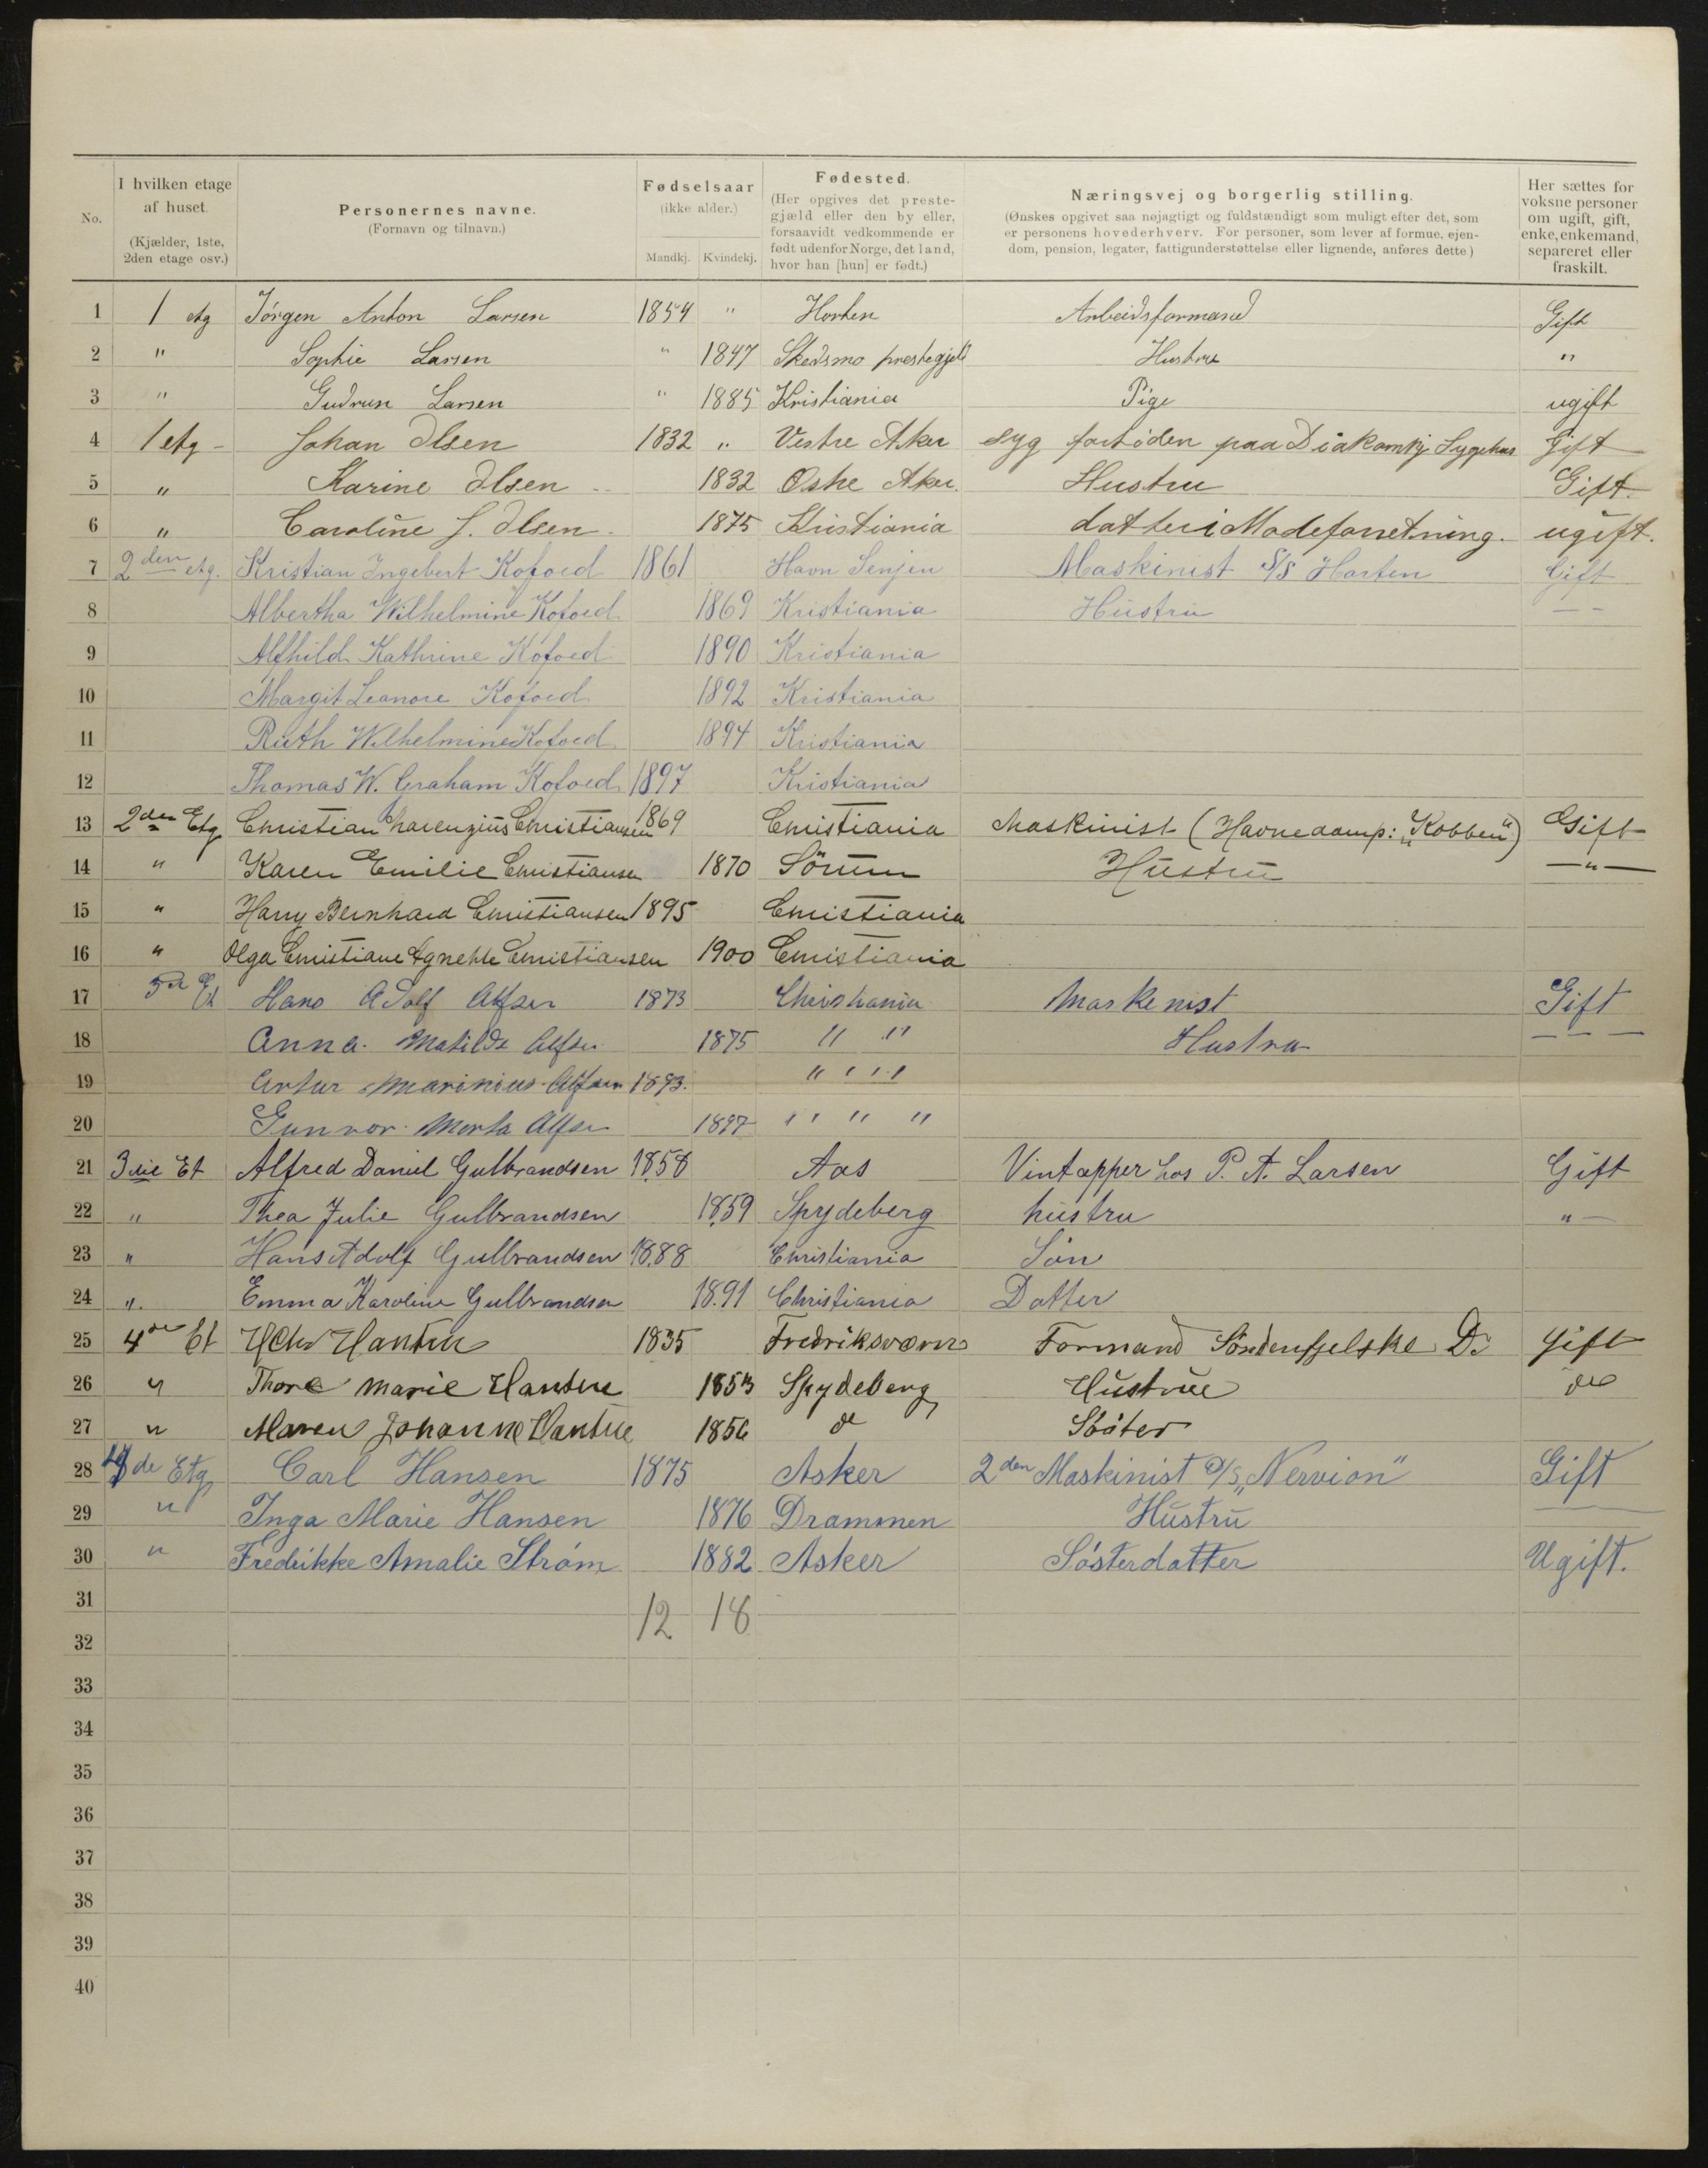 No.
I hvilken etage af huset.
(Kjælder, 1ste, 2den etage osv.)
Personernes navne.
(Fornavn og tilnavn.)
Fødselsaar
(ikke alder.)
Mandkj. Kvindekj.
Fødested.
(Her opgives det prestegjæld eller den by eller, forsaavidt vedkommende er født udenfor Norge, det land, hvor han [hun] er født.)
Næringsvej og borgerlig stilling.
(Ønskes opgivet saa nøjagtigt og fuldstændigt som muligt efter det, som er personens hovederhverv. For personer, som lever af formue, ejendom, pension, legater, fattigunderstøttelse eller lignende, anføres dette)
Her sættes for voksne personer om ugift, gift, enke, enkemand, separeret eller fraskilt.
1 1 etg Jørgen Anton Larsen 1854 " Horten Arbeidsformand Gift
2 " Sophie Larsen " 1847 Skedsmo prestegjeld Hustru "
3 " Gudrun Larsen " 1885 Kristiania Pige ugift
4 1 etg - Johan Olsen 1832 " Vestre Aker syg paa Sygehus Gift
5 " Karine Olsen 1832 Østre Aker. Hustru Gift.
6 " Caroline J. Olsen 1875 Kristiania datter i Modeforretning. ugift.
7 2den etg. Kristian Ingebert Kofoed 1861 Havn Senjen Maskinist S/S Horten Gift
8 Albertha Wilhelmine Kofoed 1869 Kristiania Hustru - -
9 Alfhild Kathrine Kofoed 1890 Kristiania
10 Margit Leanore Kofoed 1892 Kristiania
11 Ruth Wilhelmine Kofoed 1894 Kristiania
12 Thomas W. Graham Kofoed 1897 Kristiania
13 2den Etg Christian Christiansen 1869 Christiania Maskinist (Havnedamp: „Kobben") Gift
14 " Karen Emilie Christiansen 1870 Sörum Hustru - " -
15 " Harry Bernhard Christiansen 1895 Christiania
16 " Olga Christiane Agnethe Christiansen 1900 Christiania
17 Hans Adolf Alfsen 1873 Christiania Maskenist Gift
18 Anna. Matilde Alfsen 1875 " " Hustru - - -
19 Artur Marinius Alfsen 1893. " " "
20 Gunvor Alfsen 1897 " " " "
21 3die Et Alfred Daniel Gulbrandsen 1858 Aas Vintapper hos P. A. Larsen Gift
22 " Thea Julie Gulbrandsen 1859 Spydeberg hustru " -
23 " Hans Adolf Gulbrandsen 1888 Christiania Sön
24 ". Emma Karoline Gulbrandsen 1891 Christiania Datter
25 4de Et 1835 Fredriksværn Formand Söndenfjelske D. Gift
26 " Thore Marie 1853 Spydeberg Hustrue do
27 " Maren Johanne 1856 do Söster
28 4de Etg Carl Hansen 1875 Asker 2den Maskinist D/S „Nervion" Gift
29 " Inga Marie Hansen 1876 Drammen Hustru -
30 " Fredrikke Amalie Strøm 1882 Asker Søsterdatter Ugift.
31 12 18
32
33
34
35
36
37
38
39
40